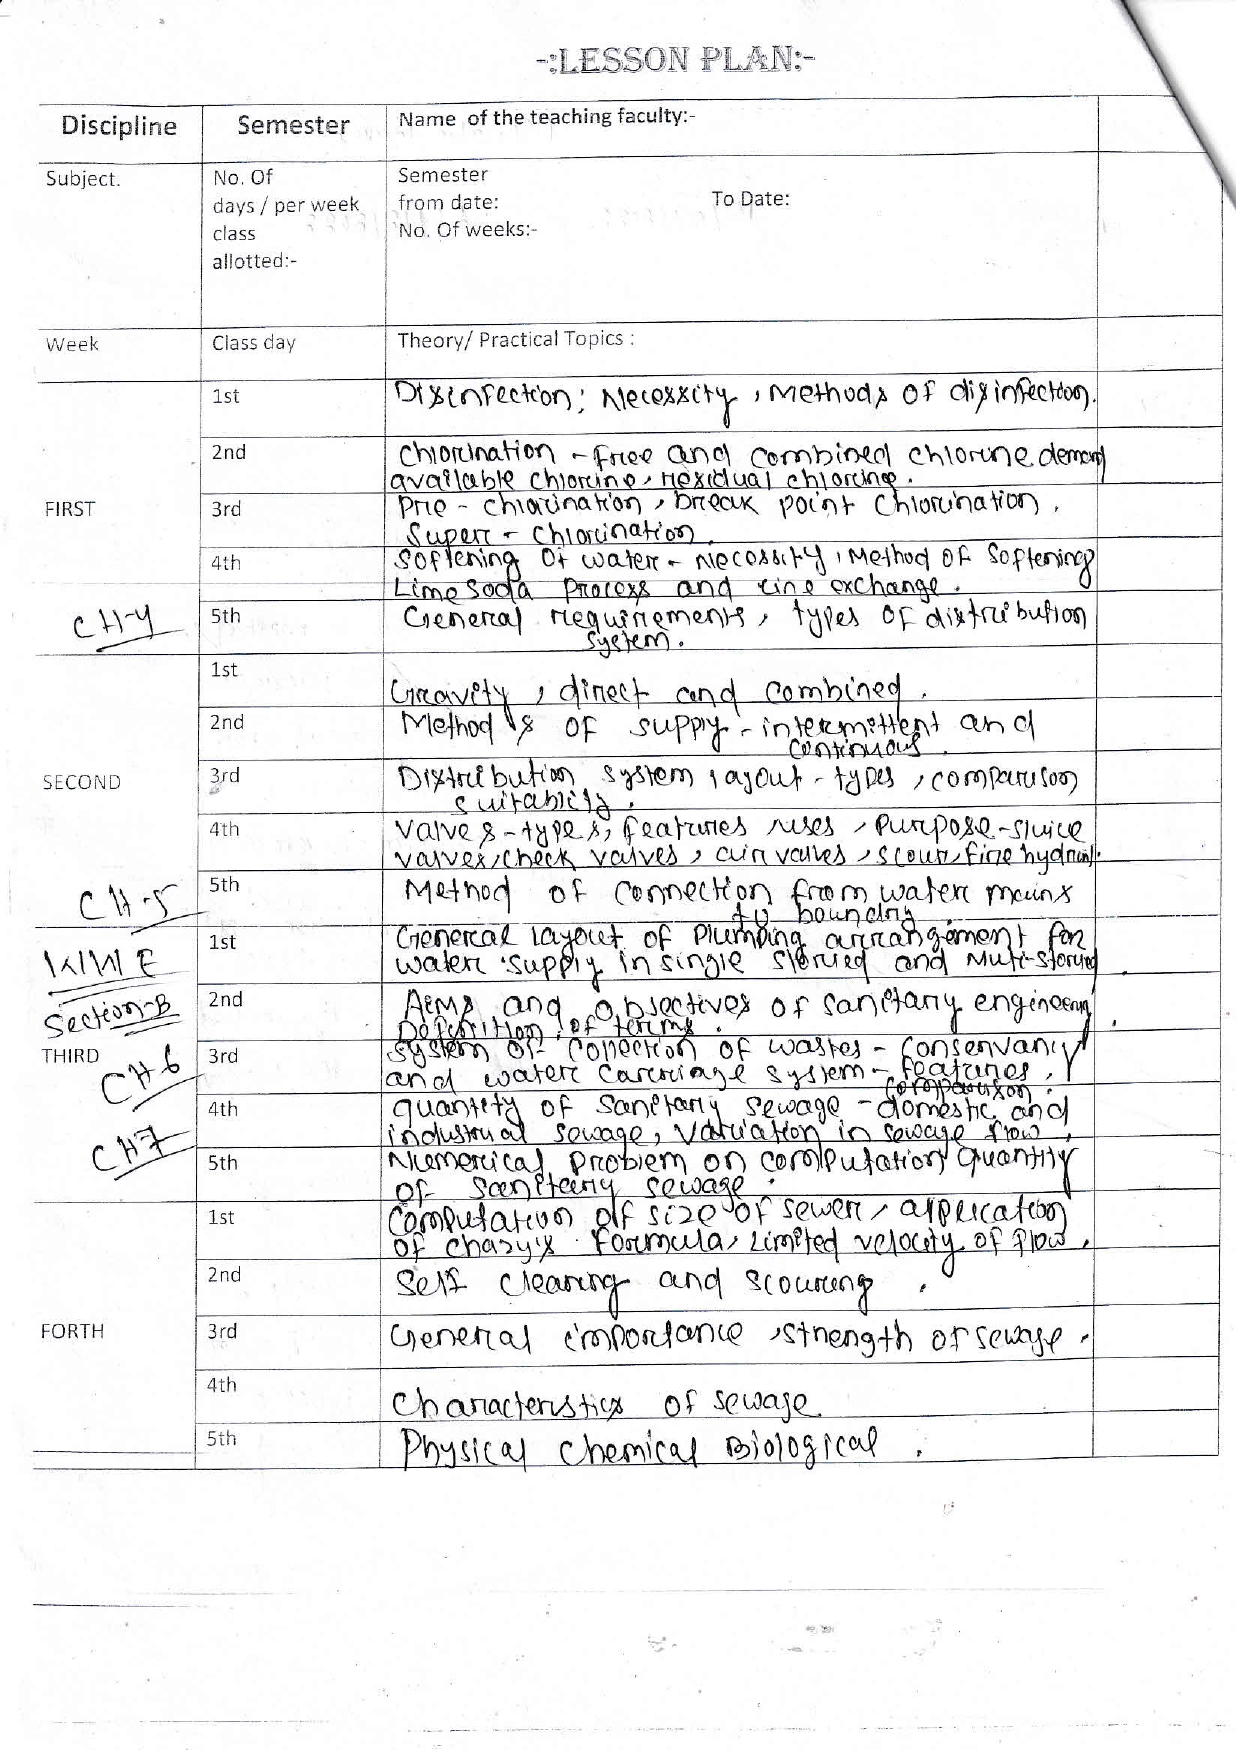 -:LESSON PLAN:-
Discipline
Semester
Name of the teaching faculty:-
Subject.
No. Of
days / per week
class
allotted:-
Semester
from date:
To Date:
No. Of weeks:-
Week
Class day
Theory/ Practical Topics :
FIRST
1st
Disinfection: Necessity, Methods of disinfection.
2nd
Chlorination - free and combined chlorine demand
available chlorine, residual chlorine.
3rd
Pre - chlorination, break point chlorination.
Super - chlorination.
4th
Softening of water - Necossity, Method of Softening
Lime Soda Process and exchange.
CH-4
5th
General requirements, types of distribution
system.
SECOND
1st
Gravity, direct and combined.
2nd
Methods of supply - intermittent and
continuous.
3rd
Distribution system layout - types, comparison
suitability.
4th
Valves - types, features uses, purpose - sluice
valves, check valves, air valves, scour, fire hydrant.
CH-5
5th
Method of connection from water mains
to
THIRD
1st
General layout of plumbing arrangement for
water supply in single storied and Muti-storied.
Section-B
2nd
Aims and objectives of sanitary engineering.
Definition of terms.
CH-6
3rd
System of collection of wastes - Conservancy
and water carriage system - features,
comparison.
4th
quantity of sanitary sewage - domestic and
industrial sewage, variation in sewage flow,
CH7
5th
Numerical problem on computation quantity
of sanitary sewage.
FORTH
1st
Computation of size of sewer, application
of chazy's formula, Limited velocity of flow,
2nd
Self clearing and scouring.
3rd
General importance, strength of sewage.
4th
Characteristics of sewage
5th
Physical Chemical Biological.